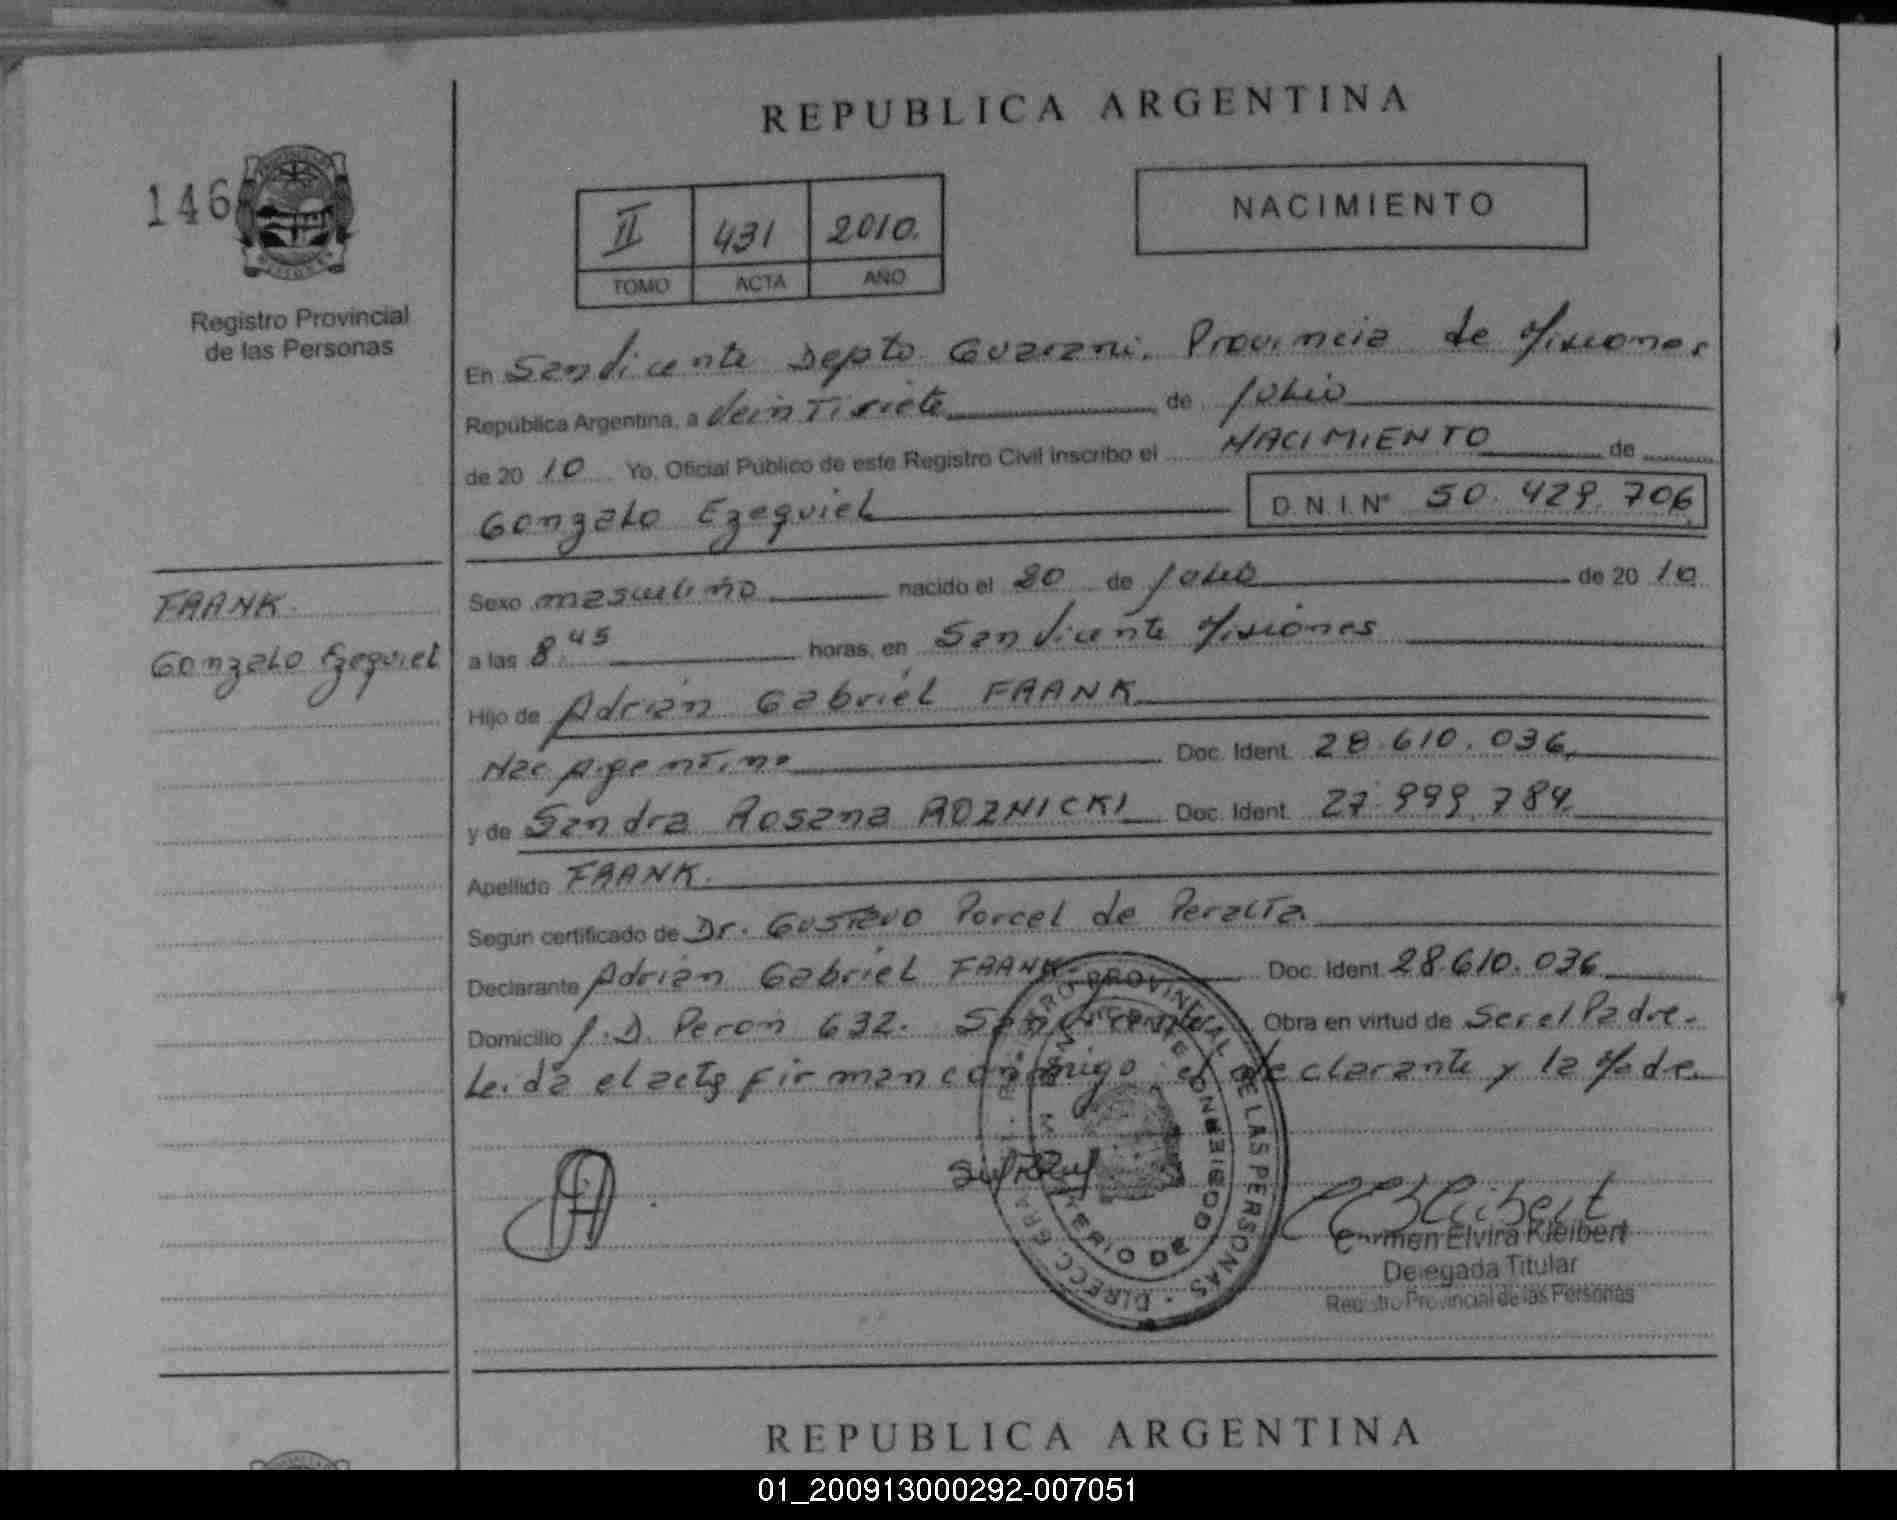 REPUBLICA ARGENTINA
146
II 431 2010.
TOMO ACTA AÑO
NACIMIENTO
Registro Provincial
de las Personas
En San Vicente Depto Guarani. Provincia de Misiones
República Argentina, a Veintisiete de Julio
de 20 10 Yo, Oficial Público de este Registro Civil inscribo el NACIMIENTO de
Gonzalo Ezequiel D.N.I.Nº 50.429.706
FRANK.
Gonzalo Ezequiel
Sexo masculino nacido el 20 de Julio de 20 10
a las 8.45 horas, en San Vicente Misiones
Hijo de Adrián Gabriel FRANK
Nac Argentino Doc. Ident. 28.610.036
y de Sandra Rosana ROZNICKI Doc. Ident. 27.999.784
Apellido FRANK.
Según certificado de Dr. Gustavo Porcel de Peralta
Declarante Adrián Gabriel FRANK Doc. Ident. 28.610.036
Domicilio J.D. Perón 632. San Vicente Obra en virtud de Ser el Padre-
Leida el acta firman conmigo el declarante y la Madre
REGISTRO PROVINCIAL DE LAS PERSONAS - DIRECC. GRAL.
MINISTERIO DE GOBIERNO
Carmen Elvira Kleibert
Delegada Titular
Registro Provincial de las Personas
REPUBLICA ARGENTINA
01_200913000292-007051